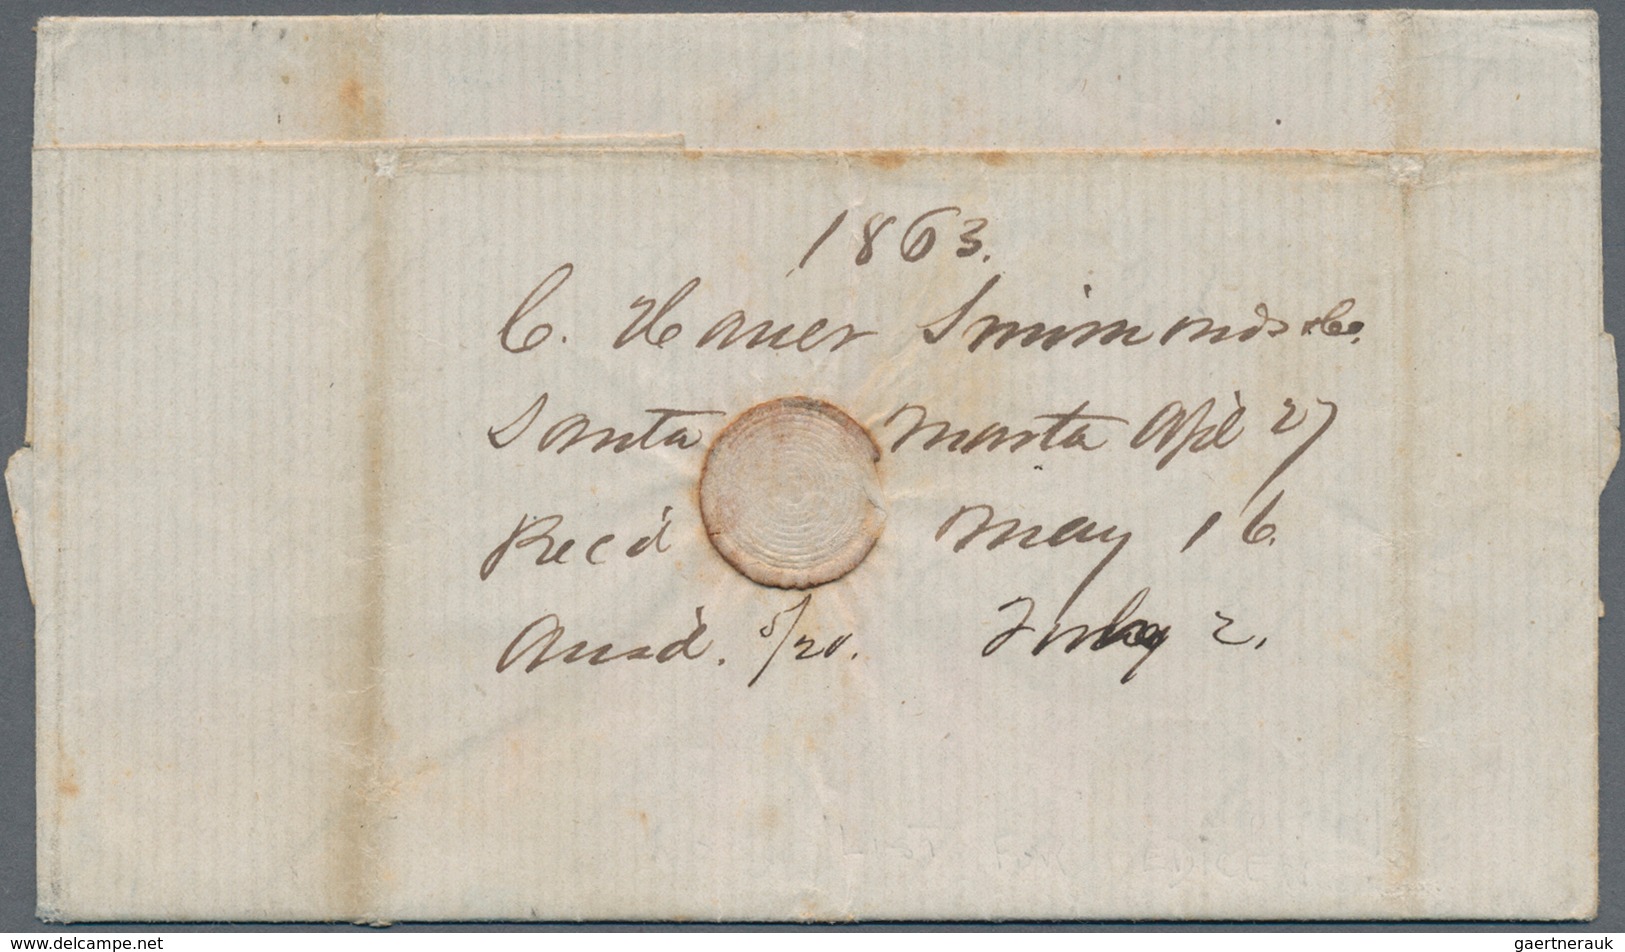 1863.
C. Hauer Simmonds & Co.
Santa Marta Apl 27
Rec'd May 16.
Ansd. 5/20. July 2.
www.delcampe.net
gaertnerauk